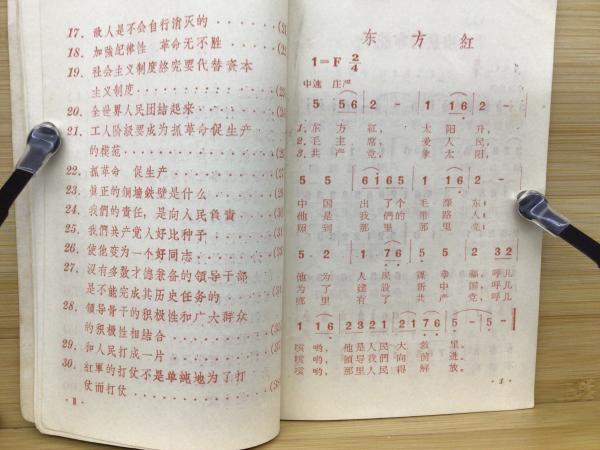 17. 敌人是不会自行消灭的
18. 加強紀律性 革命无不胜
19. 社会主义制度終究要代替資本
主义制度
20. 全世界人民团结起来
21. 工人阶級要成为抓革命促生产
的模范
22. 抓革命 促生产
23. 真正的銅墙鉄壁是什么
24. 我們的責任，是向人民負責
25. 我們共产党人好比种子
26. 使他变为一个好同志
27. 沒有多数才德兼备的領导干部
是不能完成其历史任务的
28. 領导骨干的积极性和广大群众
的积极性相結合
29. 和人民打成一片
30. 紅軍的打仗不是单純地为了打
仗而打仗
· II ·
东方紅
1=F 2/4
中速 庄严
5 56 2 - 1 16 2 -
1. 东方紅， 太阳升，
2. 毛主席， 爱人民，
3. 共产党， 象太阳，
5 5 6165 1 16 2 -
中国出了个毛澤东；
他是我們的带路人；
照到那里那里亮；
5 2 1 76 5 5 2 32
他为人民謀幸福，呼儿
为了建設新中国，呼儿
哪里有了共产党，呼儿
1 16 2321 2176 5 - 5 -
嗨哟，他是人民大救星。
嗨哟，領导我們向前进。
嗨哟，那里人民得解放。
· 1 ·